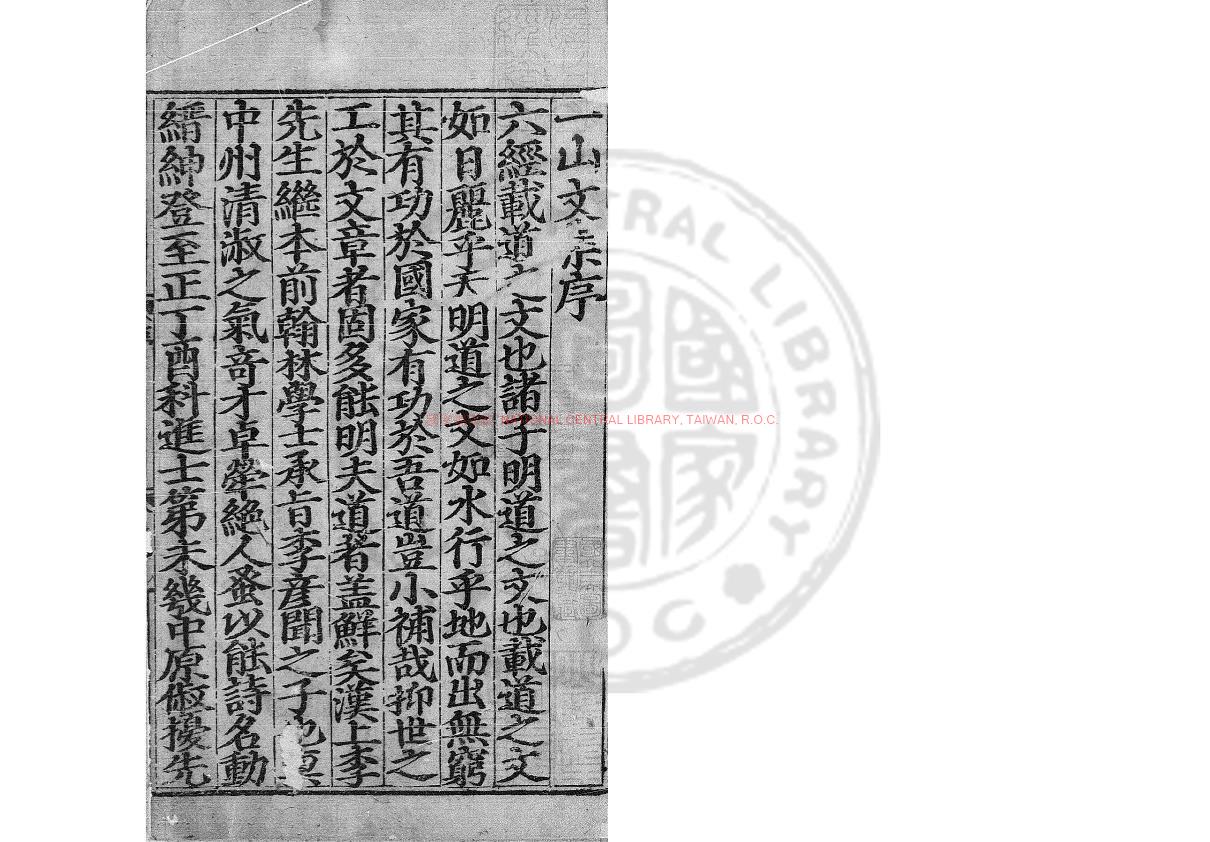 一山文集序
六經載道之文也諸子明道之文也載道之文
如日麗乎天明道之文如水行乎地而出無窮
其有功於國家有功於吾道豈小補哉抑世之
工於文章者固多能明夫道者盖鮮矣漢上李
先生繼本前翰林學士承旨李彦聞之子也稟
中州清淑之氣竒才卓犖絶人蚤以能詩名動
縉紳登至正丁酉科進士第未幾中原俶擾先
NATIONAL CENTRAL LIBRARY, TAIWAN, R.O.C.